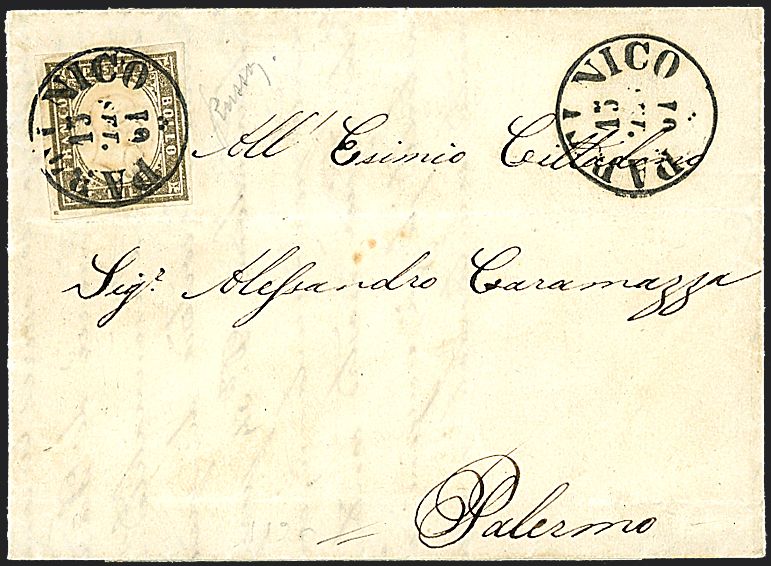 PARTINICO
BOLLO
PARTINICO
All' Esimio Cittadino
Sigr. Alessandro Caramazza
Palermo